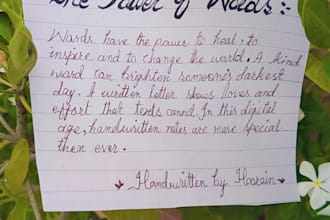 The Power of Words:-
Words have the power to heal, to
inspire and to change the world. A kind
word can brighten someone's darkest
day. A written letter shows loves and
effort that texts cannot. In this digital
age, handwritten notes are more special
then ever.
Handwritten by Hoorain